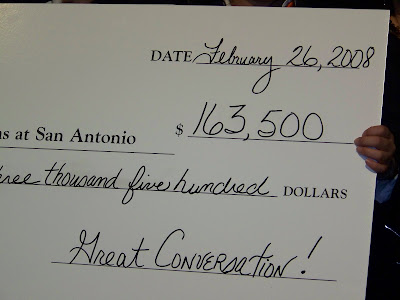 DATE February 26, 2008
$ 163,500
as at San Antonio
three thousand five hundred DOLLARS
Great Conversation!